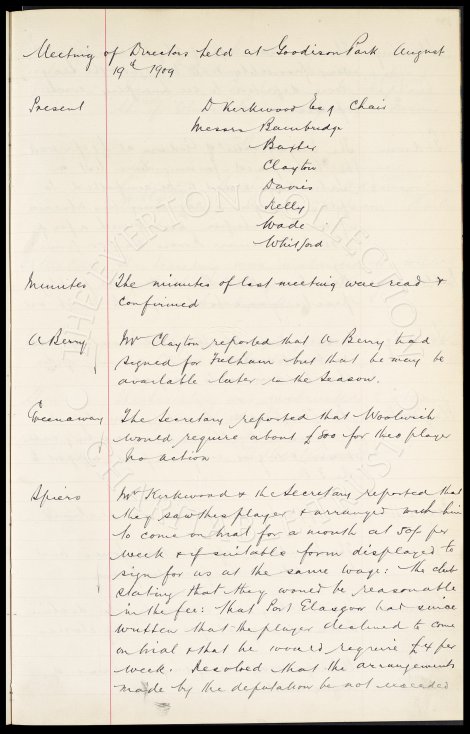 Meeting of Directors held at Goodison Park August
19th 1909
Present D Kirkwood Esq Chair
Messrs Bainbridge
Baxter
Clayton
Davies
Kelly
Wade
Whitford
Minutes The minutes of last meeting were read &
confirmed
A Berry Mr Clayton reported that A Berry had
signed for Fulham but that he may be
available later in the season.
Greenaway The Secretary reported that Woolwich
would require about £800 for this player
No action
Spiers Mr Kirkwood & the Secretary reported that
they saw this player & arranged with him
to come on trial for a month at 50/- per
week & if suitable form displayed to
sign for us at the same wage: the club
stating that they would be reasonable
in the fee: that Port Glasgow had since
written that the player declined to come
on trial & that he would require £4 per
week. Resolved that the arrangements
made by the deputation be not exceeded
THE EVERTON COLLECTION